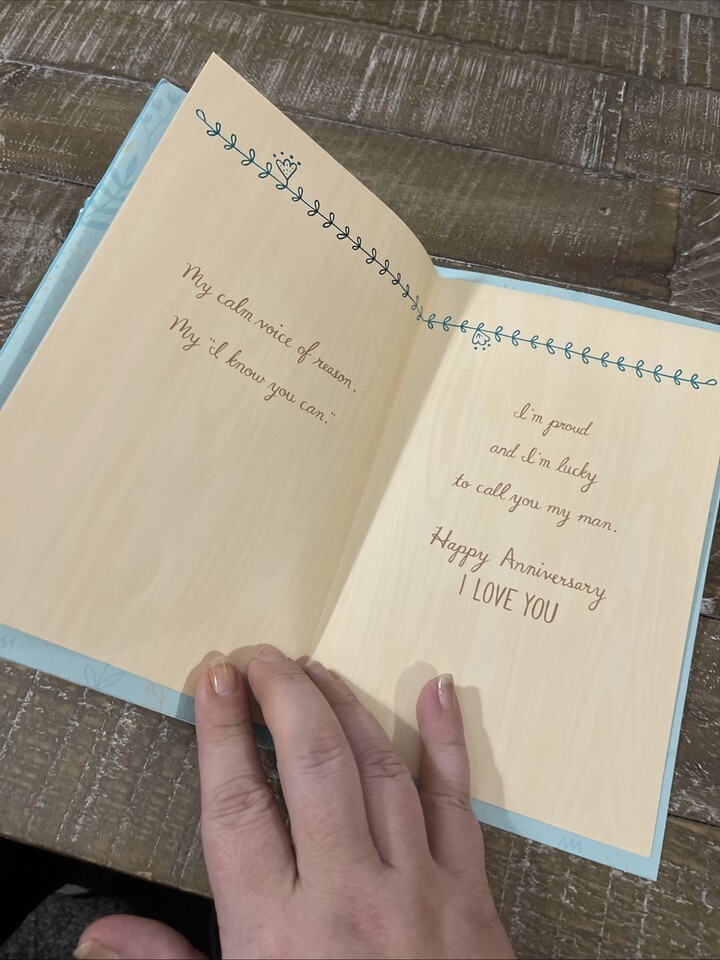 My calm voice of reason.
My "I know you can."
I'm proud
and I'm lucky
to call you my man.
Happy Anniversary
I LOVE YOU